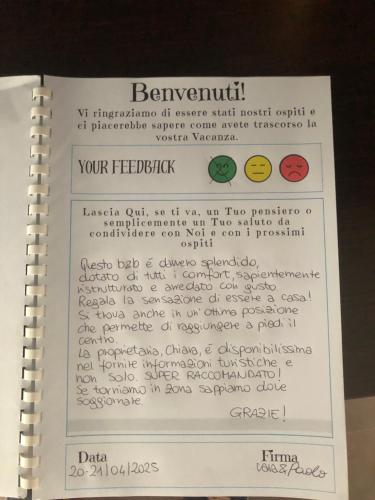 Benvenuti!
Vi ringraziamo di essere stati nostri ospiti e
ci piacerebbe sapere come avete trascorso la
vostra Vacanza.
YOUR FEEDBACK
Lascia Qui, se ti va, un Tuo pensiero o
semplicemente un Tuo saluto da
condividere con Noi e con i prossimi
ospiti
Questo b&b é davvero splendido,
dotato di tutti i comfort, sapientemente
ristrutturato e arredato con gusto
Regala la sensazione di essere a casa!
Si trova anche in un'ottima posizione
che permette di raggiungere a piedi il
centro.
La proprietaria, Chiara, é disponibilissima
nel fornire informazioni turistiche e
non solo. SUPER RACCOMANDATO!
Se torniamo in zona sappiamo dove
soggiornare.
GRAZIE!
Data
Firma
20-21/04/2025
&Paolo